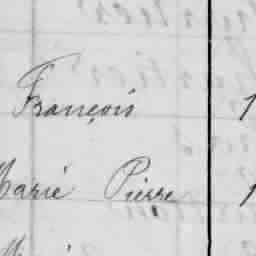 François 1
Marie Pierre 1